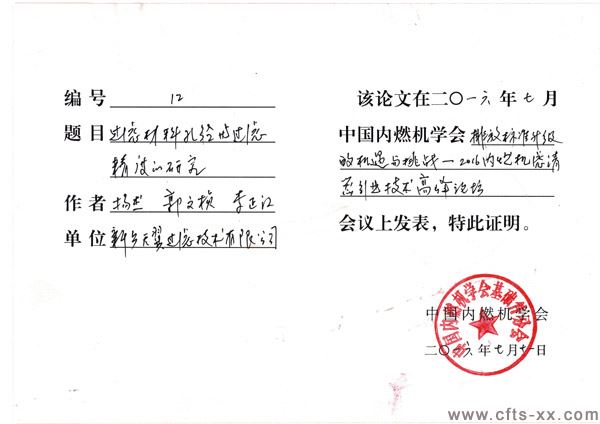 编号 12
题目 过滤材料孔径与过滤
精度的研究
作者 杨杰 郭文桢 李正江
单位 新乡天翼过滤技术有限公司
该论文在二〇一六年七月
中国内燃机学会 排放标准升级
的机遇与挑战—2016内燃机滤清
技术高峰论坛
会议上发表，特此证明。
中国内燃机学会
二〇一六年七月十一日
中国内燃机学会基础
www.cfts-xx.com